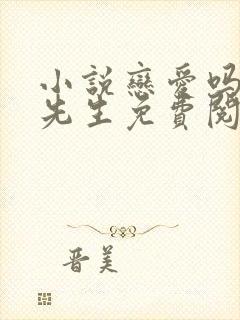 小說戀愛嗎
先生免費閱
晋美